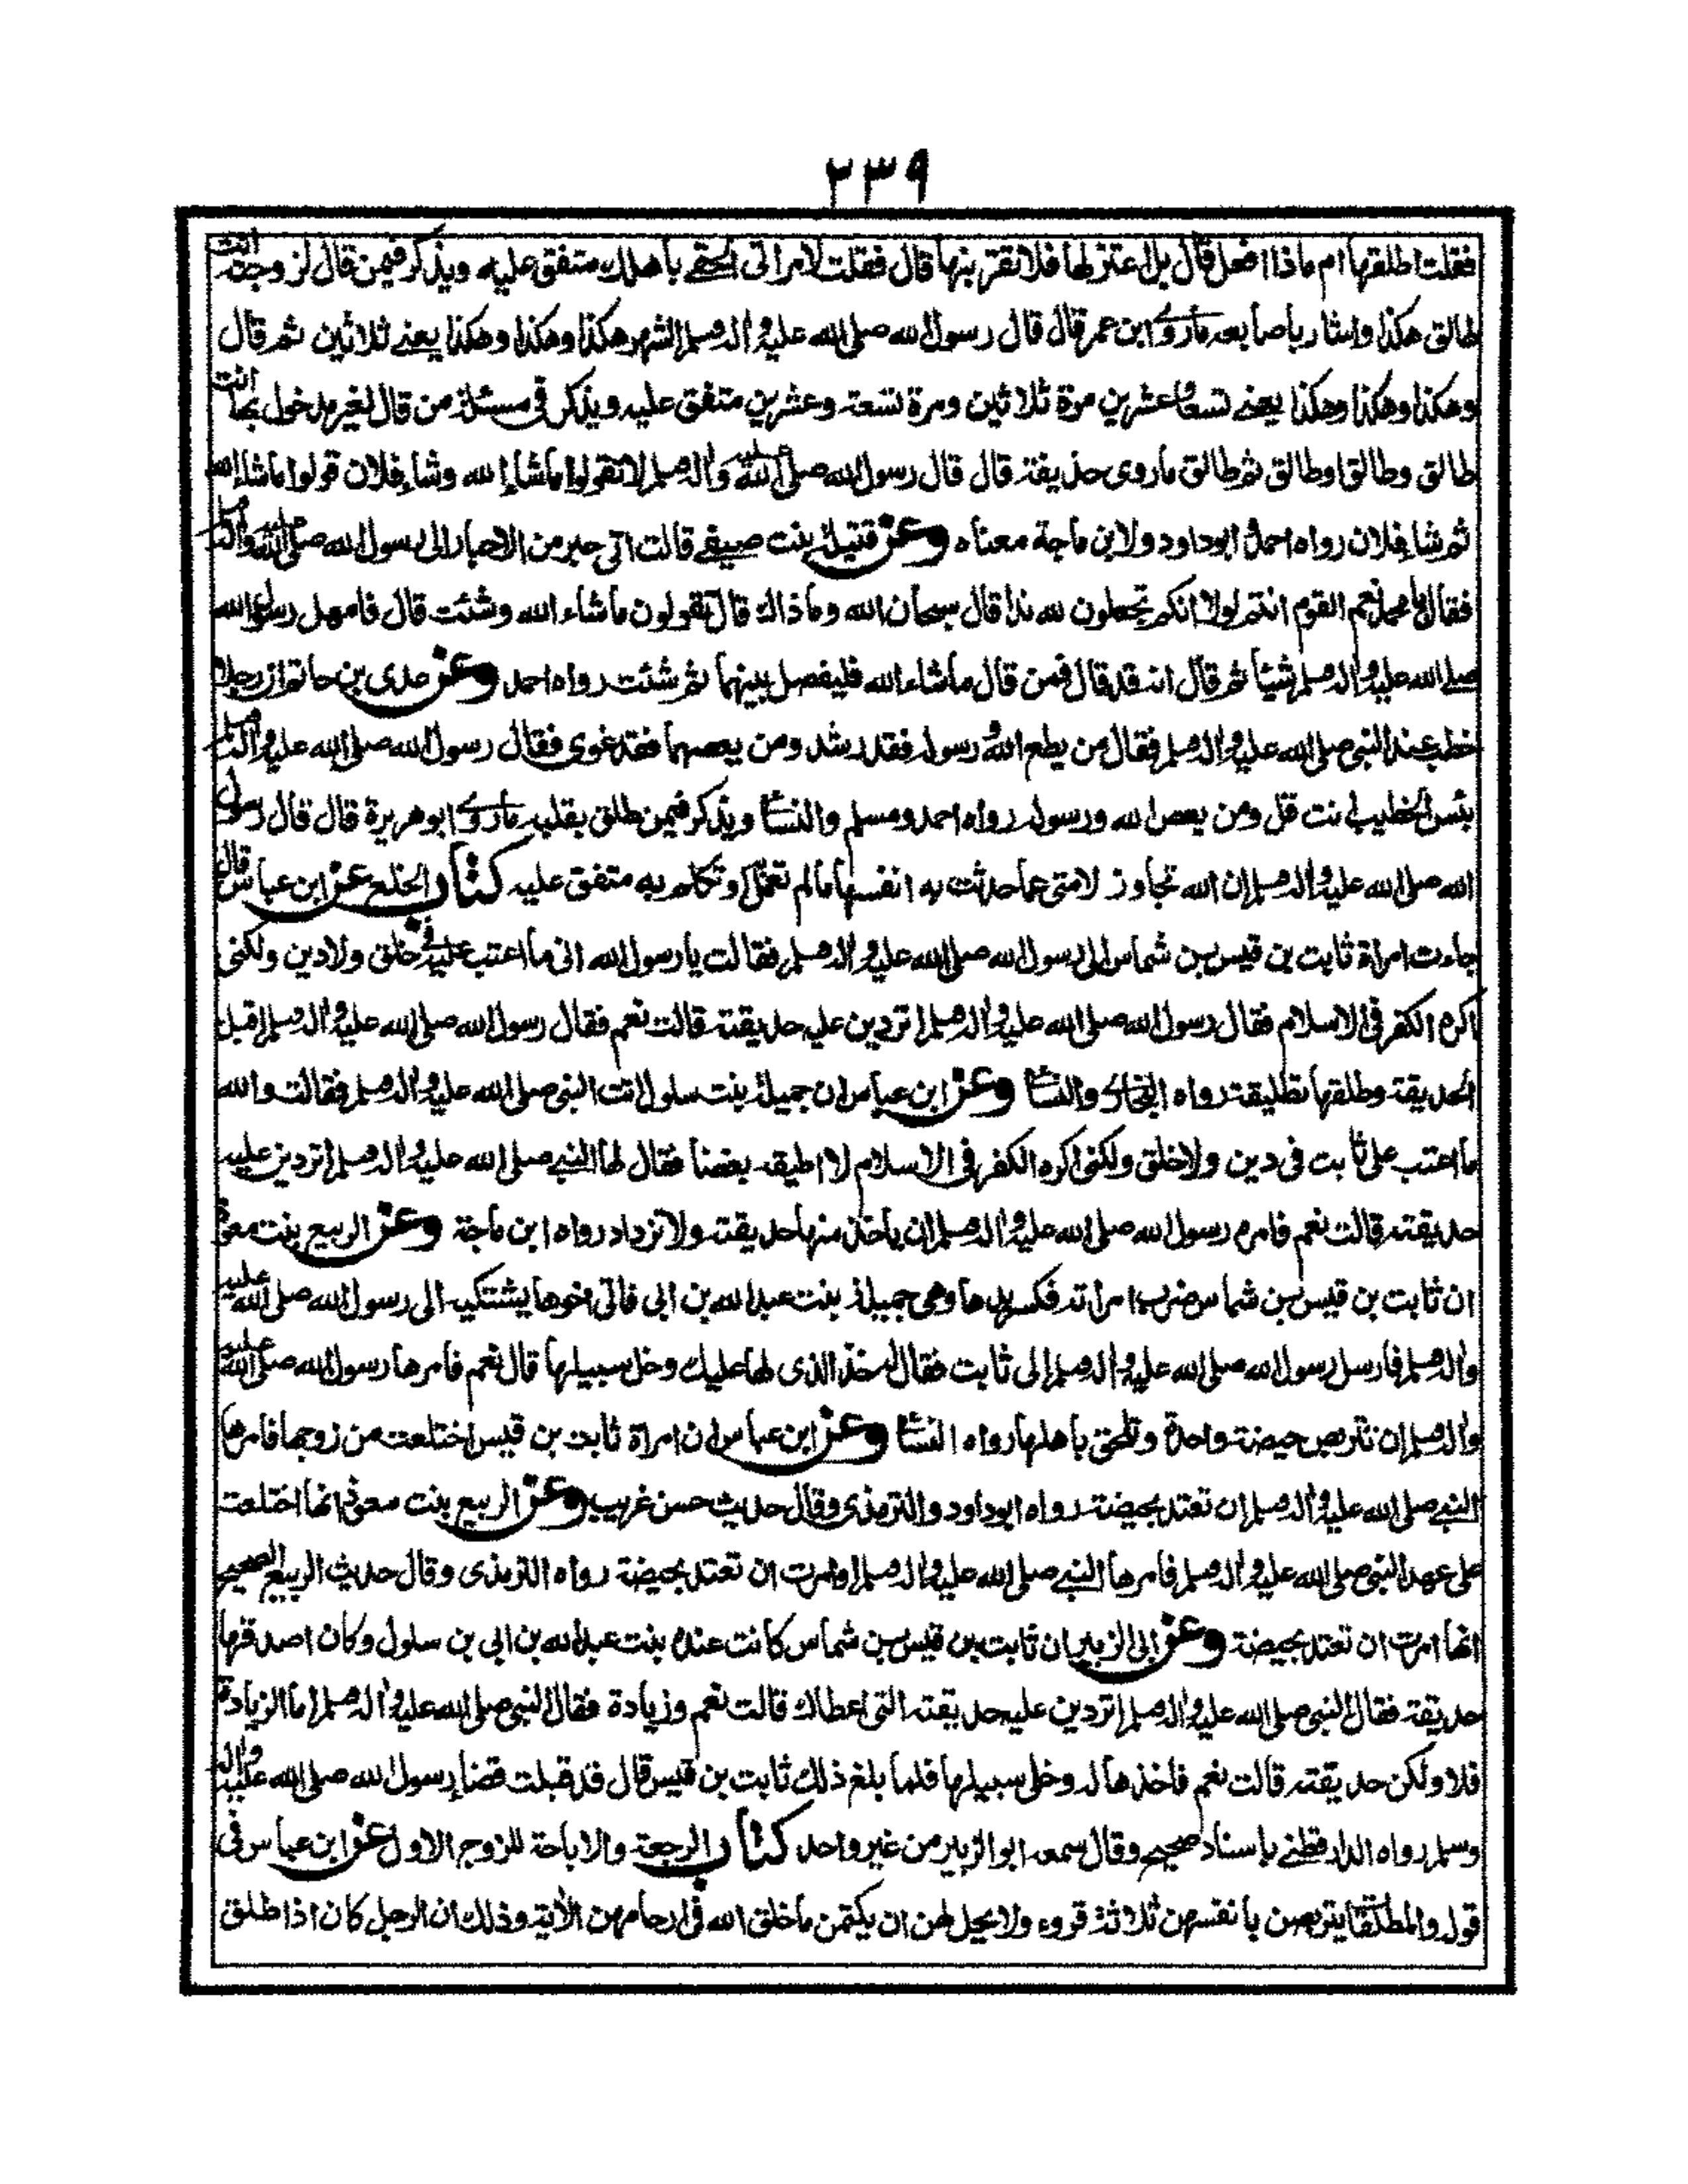 ٢٣٩
فقلت اطلقها ام ماذا افعل قال بل اعتزلها فلا تقربنها قال فقلت لامراتى الحقے باهلك متفق عليه ويذكر فيمن قال لزوجته انت
طالق هكذا واشار باصابعه ماروے ابن عمر قال قال رسول الله صلى الله عليه واله وسلم الشهر هكذا وهكذا وهكذا يعنے ثلاثين ثم قال
وهكذا وهكذا وهكذا يعنے تسعا وعشرين مرة ثلاثين ومرة تسعة وعشرين متفق عليه ويذكر فى مسئلة من قال لغير مدخول بها انت
طالق وطالق او طالق ثم طالق ماروى حذيفة قال قال رسول الله صلى الله عليه واله وسلم لا تقولوا ماشاء الله وشاء فلان قولوا ماشاء الله
ثم شاء فلان رواه احمد وابوداود ولابن ماجة معناه وعن قتيلة بنت صيفے قالت اتى حبر من الاحبار الى رسول الله صلى الله عليه واله وسلم
فقال يا محمد نعم القوم انتم لولا انكم تجعلون لله ندا قال سبحان الله وما ذاك قال تقولون ماشاء الله وشئت قال فامهل رسول الله
صلے الله عليه واله وسلم شيئا ثم قال انه قد قال فمن قال ماشاء الله فليفصل بينهما ثم شئت رواه احمد وعن عدى بن حاتم ان رجلا
خطب عند النبى صلى الله عليه واله وسلم فقال من يطع الله ورسوله فقد رشد ومن يعصهما فقد غوى فقال رسول الله صلى الله عليه واله وسلم
بئس الخطيب انت قل ومن يعص الله ورسوله رواه احمد ومسلم والنسائ ويذكر فيمن طلق بقلبه ماروے ابو هريرة قال قال رسول
الله صلى الله عليه واله وسلم ان الله تجاوز لامتى عما حدثت به انفسها مالم تعمل او تكلم به متفق عليه كتاب الخلع عن ابن عباس قال
جاءت امراة ثابت بن قيس بن شماس الى رسول الله صلى الله عليه واله وسلم فقالت يا رسول الله انى ما اعتب عليه فى خلق ولا دين ولكنى
اكره الكفر فى الاسلام فقال رسول الله صلى الله عليه واله وسلم اتردين عليه حديقته قالت نعم فقال رسول الله صلى الله عليه واله وسلم اقبل
الحديقة وطلقها تطليقة رواه البخارے والنسائ وعن ابن عباس ان جميلة بنت سلول اتت النبى صلى الله عليه واله وسلم فقالت والله
ما اعتب على ثابت فى دين ولا خلق ولكنى اكره الكفر فى الاسلام لا اطيقه بغضا فقال لها النبے صلى الله عليه واله وسلم اتردين عليه
حديقته قالت نعم فامره رسول الله صلى الله عليه واله وسلم ان ياخذ منها حديقته ولا تزداد رواه ابن ماجة وعن الربيع بنت معوذ
ان ثابت بن قيس بن شماس ضرب امراته فكسر يدها وهى جميلة بنت عبد الله بن ابى فاتى اخوها يشتكيه الى رسول الله صلى الله عليه
واله وسلم فارسل رسول الله صلى الله عليه واله وسلم الى ثابت فقال له خذ الذى لها عليك وخل سبيلها قال نعم فامرها رسول الله صلى الله عليه
واله وسلم ان تتربص حيضة واحدة وتلحق باهلها رواه النسائ وعن ابن عباس ان امراة ثابت بن قيس اختلعت من زوجها فامرها
النبے صلى الله عليه واله وسلم ان تعتد بحيضة رواه ابوداود والترمذى وقال حديث حسن غريب وعن الربيع بنت معوذ انها اختلعت
على عهد النبى صلى الله عليه واله وسلم فامرها النبے صلى الله عليه واله وسلم او امرت ان تعتد بحيضة رواه الترمذى وقال حديث الربيع الصحيح
انها امرت ان تعتد بحيضة وعن ابى الزبير ان ثابت بن قيس بن شماس كانت عنده بنت عبد الله بن ابى بن سلول وكان اصدقها
حديقة فقال النبى صلى الله عليه واله وسلم اتردين عليه حديقته التى اعطاك قالت نعم وزيادة فقال النبى صلى الله عليه واله وسلم اما الزيادة
فلا ولكن حديقته قالت نعم فاخذها له وخلى سبيلها فلما بلغ ذلك ثابت بن قيس قال قد قبلت قضاء رسول الله صلى الله عليه واله
وسلم رواه الدارقطنے باسناد صحيح وقال سمعه ابو الزبير من غير واحد كتاب الرجعة والاباحة للزوج الاول عن ابن عباس فى
قوله والمطلقات يتربصن بانفسهن ثلاثة قروء ولا يحل لهن ان يكتمن ما خلق الله فى ارحامهن الآية وذلك ان الرجل كان اذا طلق